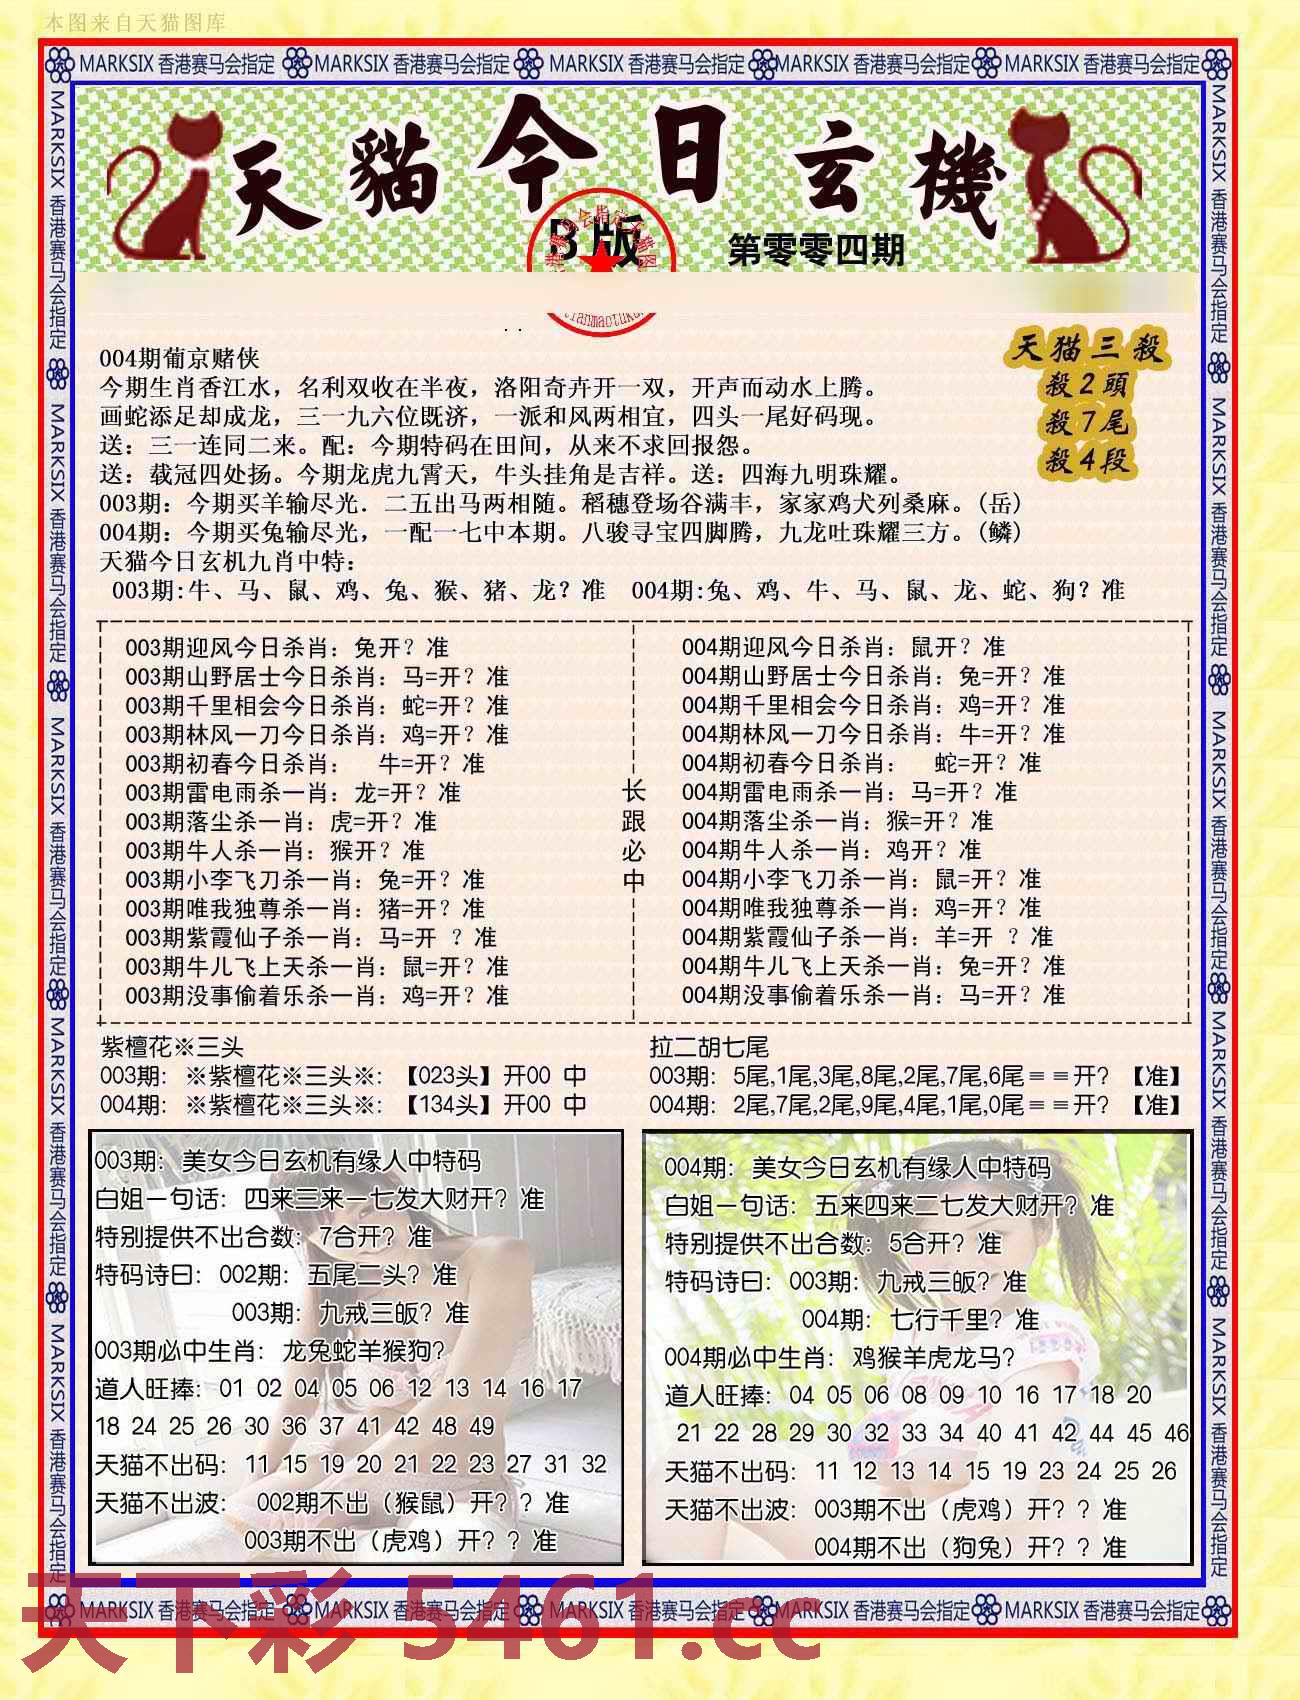 本图来自天猫图库
MARKSIX 香港赛马会指定 MARKSIX 香港赛马会指定 MARKSIX 香港赛马会指定 MARKSIX 香港赛马会指定 MARKSIX 香港赛马会指定
天貓今日玄機
B版
第零零四期
天猫三殺
殺2頭
殺7尾
殺4段
004期葡京赌侠
今期生肖香江水，名利双收在半夜，洛阳奇卉开一双，开声而动水上腾。
画蛇添足却成龙，三一九六位既济，一派和风两相宜，四头一尾好码现。
送：三一连同二来。配：今期特码在田间，从来不求回报怨。
送：载冠四处扬。今期龙虎九霄天，牛头挂角是吉祥。送：四海九明珠耀。
003期：今期买羊输尽光．二五出马两相随。稻穗登场谷满丰，家家鸡犬列桑麻。(岳)
004期：今期买兔输尽光，一配一七中本期。八骏寻宝四脚腾，九龙吐珠耀三方。(鳞)
天猫今日玄机九肖中特：
003期:牛、马、鼠、鸡、兔、猴、猪、龙？准 004期:兔、鸡、牛、马、鼠、龙、蛇、狗？准
003期迎风今日杀肖：兔开？准
003期山野居士今日杀肖：马=开？准
003期千里相会今日杀肖：蛇=开？准
003期林风一刀今日杀肖：鸡=开？准
003期初春今日杀肖： 牛=开？准
003期雷电雨杀一肖：龙=开？准
003期落尘杀一肖：虎=开？准
003期牛人杀一肖：猴开？准
003期小李飞刀杀一肖：兔=开？准
003期唯我独尊杀一肖：猪=开？准
003期紫霞仙子杀一肖：马=开 ？准
003期牛儿飞上天杀一肖：鼠=开？准
003期没事偷着乐杀一肖：鸡=开？准
长跟必中
004期迎风今日杀肖：鼠开？准
004期山野居士今日杀肖：兔=开？准
004期千里相会今日杀肖：鸡=开？准
004期林风一刀今日杀肖：牛=开？准
004期初春今日杀肖： 蛇=开？准
004期雷电雨杀一肖：马=开？准
004期落尘杀一肖：猴=开？准
004期牛人杀一肖：鸡开？准
004期小李飞刀杀一肖：鼠=开？准
004期唯我独尊杀一肖：鸡=开？准
004期紫霞仙子杀一肖：羊=开 ？准
004期牛儿飞上天杀一肖：兔=开？准
004期没事偷着乐杀一肖：马=开？准
紫檀花※三头
003期: ※紫檀花※三头※: 【023头】开00 中
004期: ※紫檀花※三头※: 【134头】开00 中
拉二胡七尾
003期: 5尾,1尾,3尾,8尾,2尾,7尾,6尾＝＝开? 【准】
004期: 2尾,7尾,2尾,9尾,4尾,1尾,0尾＝＝开? 【准】
003期: 美女今日玄机有缘人中特码
白姐一句话: 四来三来一七发大财开? 准
特别提供不出合数: 7合开? 准
特码诗曰: 002期: 五尾二头? 准
003期: 九戒三皈? 准
003期必中生肖: 龙兔蛇羊猴狗?
道人旺捧: 01 02 04 05 06 12 13 14 16 17
18 24 25 26 30 36 37 41 42 48 49
天猫不出码: 11 15 19 20 21 22 23 27 31 32
天猫不出波: 002期不出（猴鼠）开? ? 准
003期不出（虎鸡）开? ? 准
004期: 美女今日玄机有缘人中特码
白姐一句话: 五来四来二七发大财开? 准
特别提供不出合数: 5合开? 准
特码诗曰: 003期: 九戒三皈? 准
004期: 七行千里? 准
004期必中生肖: 鸡猴羊虎龙马?
道人旺捧: 04 05 06 08 09 10 16 17 18 20
21 22 28 29 30 32 33 34 40 41 42 44 45 46
天猫不出码: 11 12 13 14 15 19 23 24 25 26
天猫不出波: 003期不出（虎鸡）开? ? 准
004期不出（狗兔）开? ? 准
MARKSIX 香港赛马会指定 MARKSIX 香港赛马会指定 MARKSIX 香港赛马会指定 MARKSIX 香港赛马会指定 MARKSIX 香港赛马会指定
MARKSIX 香港赛马会指定 MARKSIX 香港赛马会指定 MARKSIX 香港赛马会指定 MARKSIX 香港赛马会指定 MARKSIX 香港赛马会指定
MARKSIX 香港赛马会指定 MARKSIX 香港赛马会指定 MARKSIX 香港赛马会指定 MARKSIX 香港赛马会指定 MARKSIX 香港赛马会指定
天下彩 5461.cc